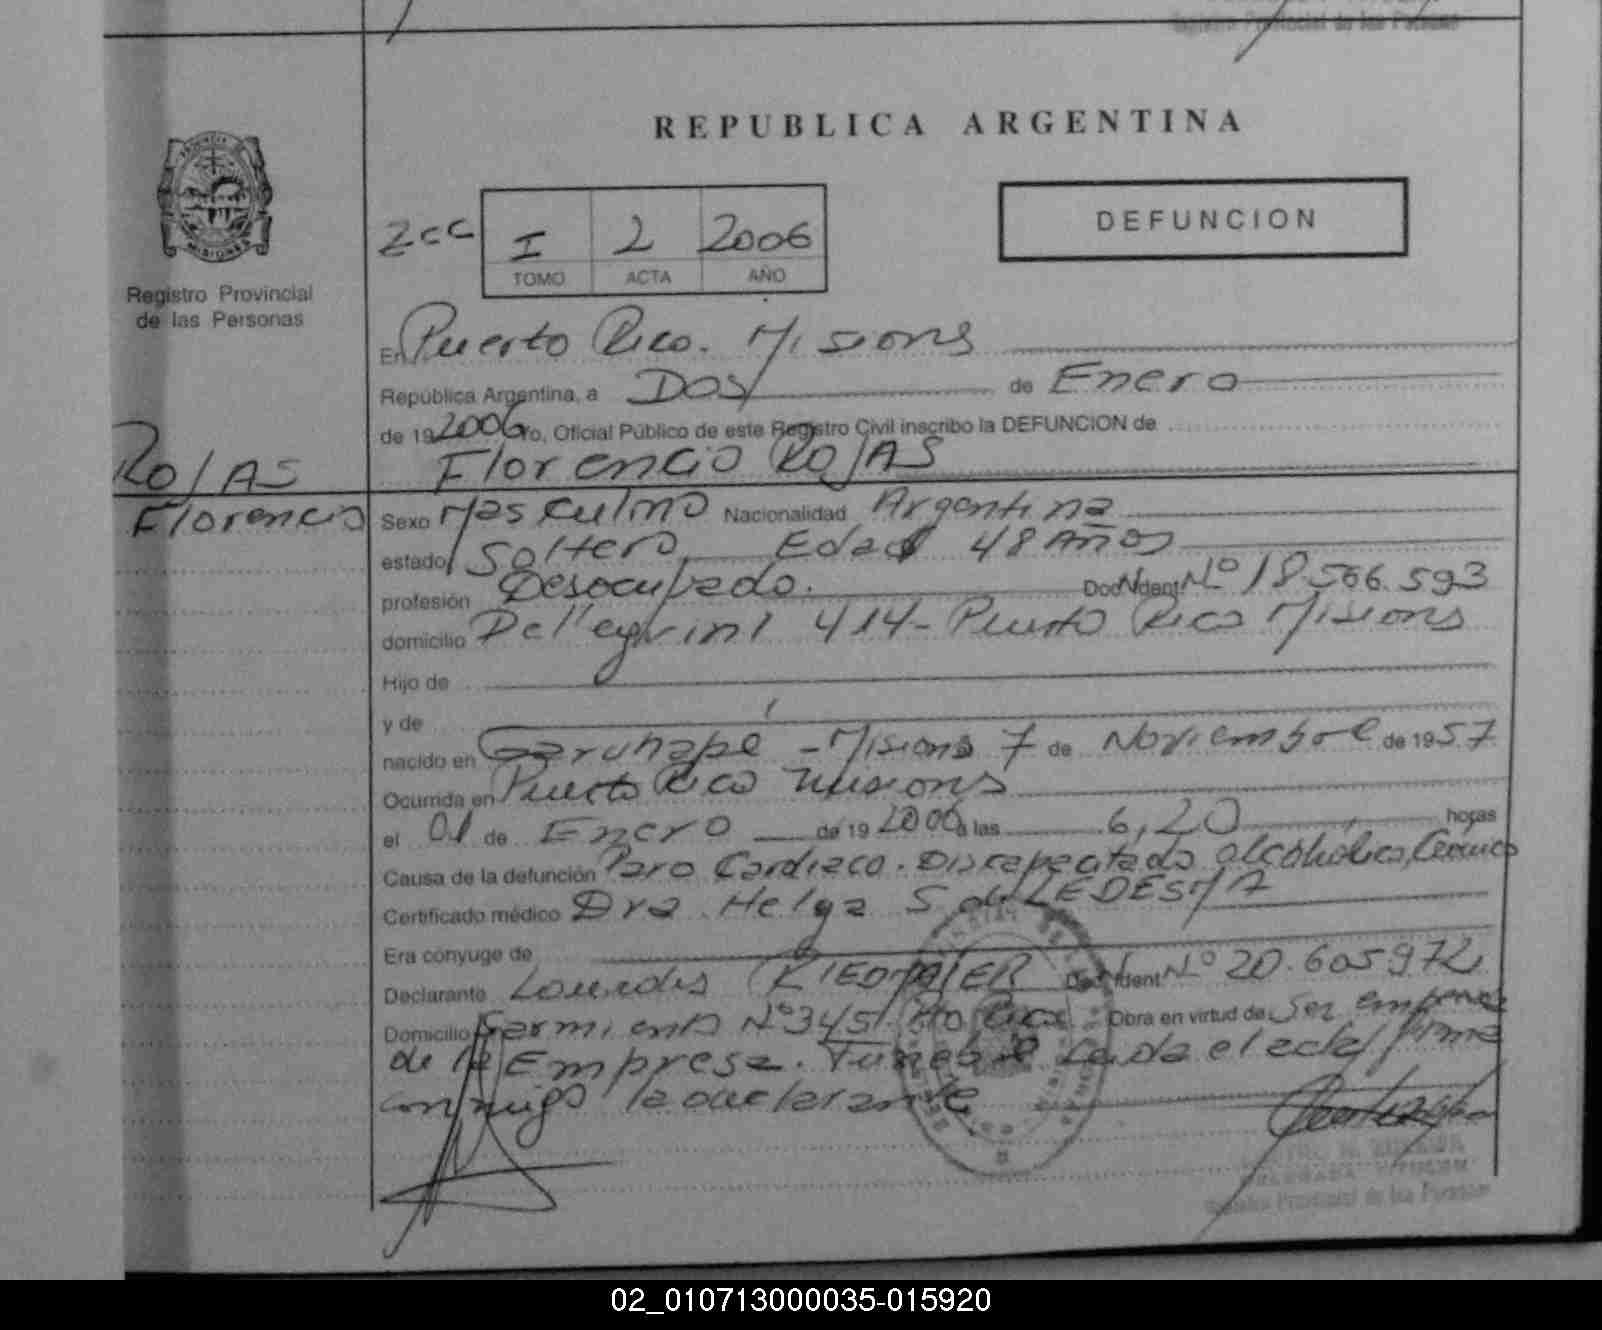 REPUBLICA ARGENTINA
PROVINCIA DE MISIONES
Registro Provincial
de las Personas
2cc I 2 2006
TOMO ACTA AÑO
DEFUNCION
En Puerto Rico. Misiones
República Argentina, a Dos de Enero
de 19 2006 Yo, Oficial Público de este Registro Civil inscribo la DEFUNCION de
Florencio ROJAS
ROJAS
Florencio
Sexo Masculino Nacionalidad Argentina
estado Soltero Edad 48 Años
profesión Desocupado. Doc. Ident. Nº 18.566.593
domicilio Pellegrini 414- Puerto Rico Misiones
Hijo de
y de
nacido en Garuhapé - Misiones 7 de Noviembre de 1957
Ocurrida en Puerto Rico Misiones
el 01 de Enero de 19 2006 a las 6,20 horas
Causa de la defunción Paro Cardiaco. Discapacitado alcoholico, Cronico
Certificado médico Dra. Helga S de LEDESMA
Era cónyuge de
Declarante Lourdes Doc. Ident. Nº 20.605972
Domicilio Sarmiento Nº 345 Pto Rico Obra en virtud de Ser
de la Empresa. Funebre Leida el acta firma
conmigo la declarante
Registro Provincial de las Personas
02_010713000035-015920